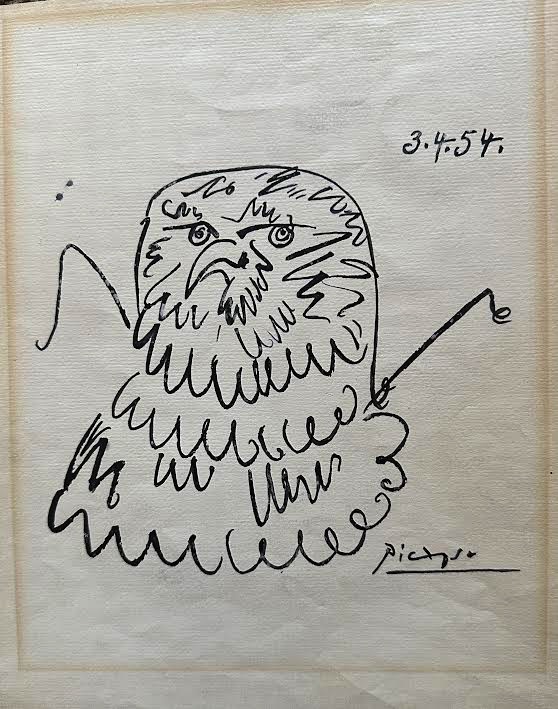 3.4.54.
Picasso